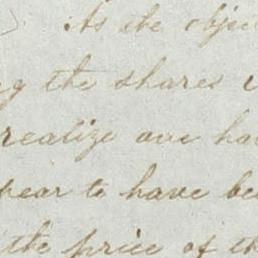 As the objec
g the shares
realize one ha
pear to have be
the price of th